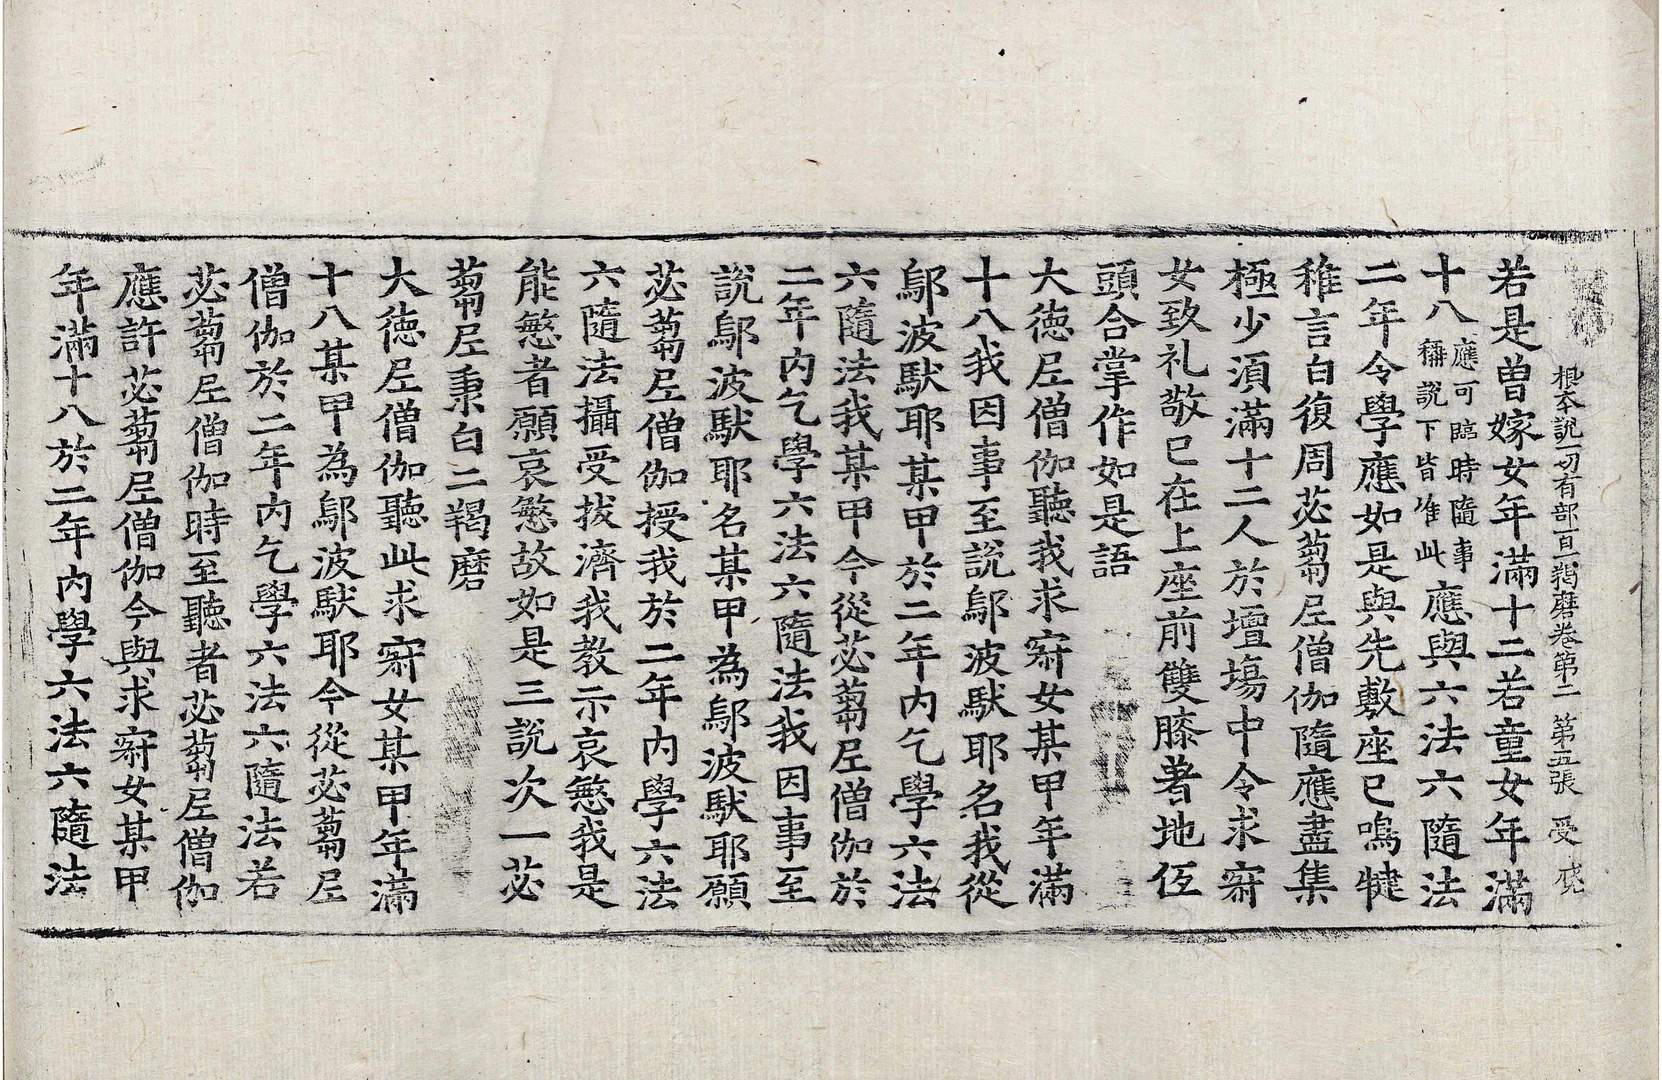 根本說一切有部百一羯磨卷第二 第五張 受
若是曾嫁女年滿十二若童女年滿
十八應可臨時隨事稱說下皆准此應與六法六隨法
二年令學應如是與先敷座已鳴揵
稚言白復周苾蒭尼僧伽隨應盡集
極少須滿十二人於壇場中令求寂
女致礼敬已在上座前雙膝著地伍
頭合掌作如是語
大德尼僧伽聽我求寂女某甲年滿
十八我因事至說鄔波馱耶名我從
鄔波馱耶某甲於二年內乞學六法
六隨法我某甲今從苾蒭尼僧伽於
二年內乞學六法六隨法我因事至
說鄔波馱耶名某甲為鄔波馱耶願
苾蒭尼僧伽授我於二年內學六法
六隨法攝受拔濟我教示哀慜我是
能慜者願哀慜故如是三說次一苾
蒭尼秉白二羯磨
大德尼僧伽聽此求寂女某甲年滿
十八某甲為鄔波馱耶今從苾蒭尼
僧伽於二年內乞學六法六隨法若
苾蒭尼僧伽時至聽者苾蒭尼僧伽
應許苾蒭尼僧伽今與求寂女某甲
年滿十八於二年內學六法六隨法